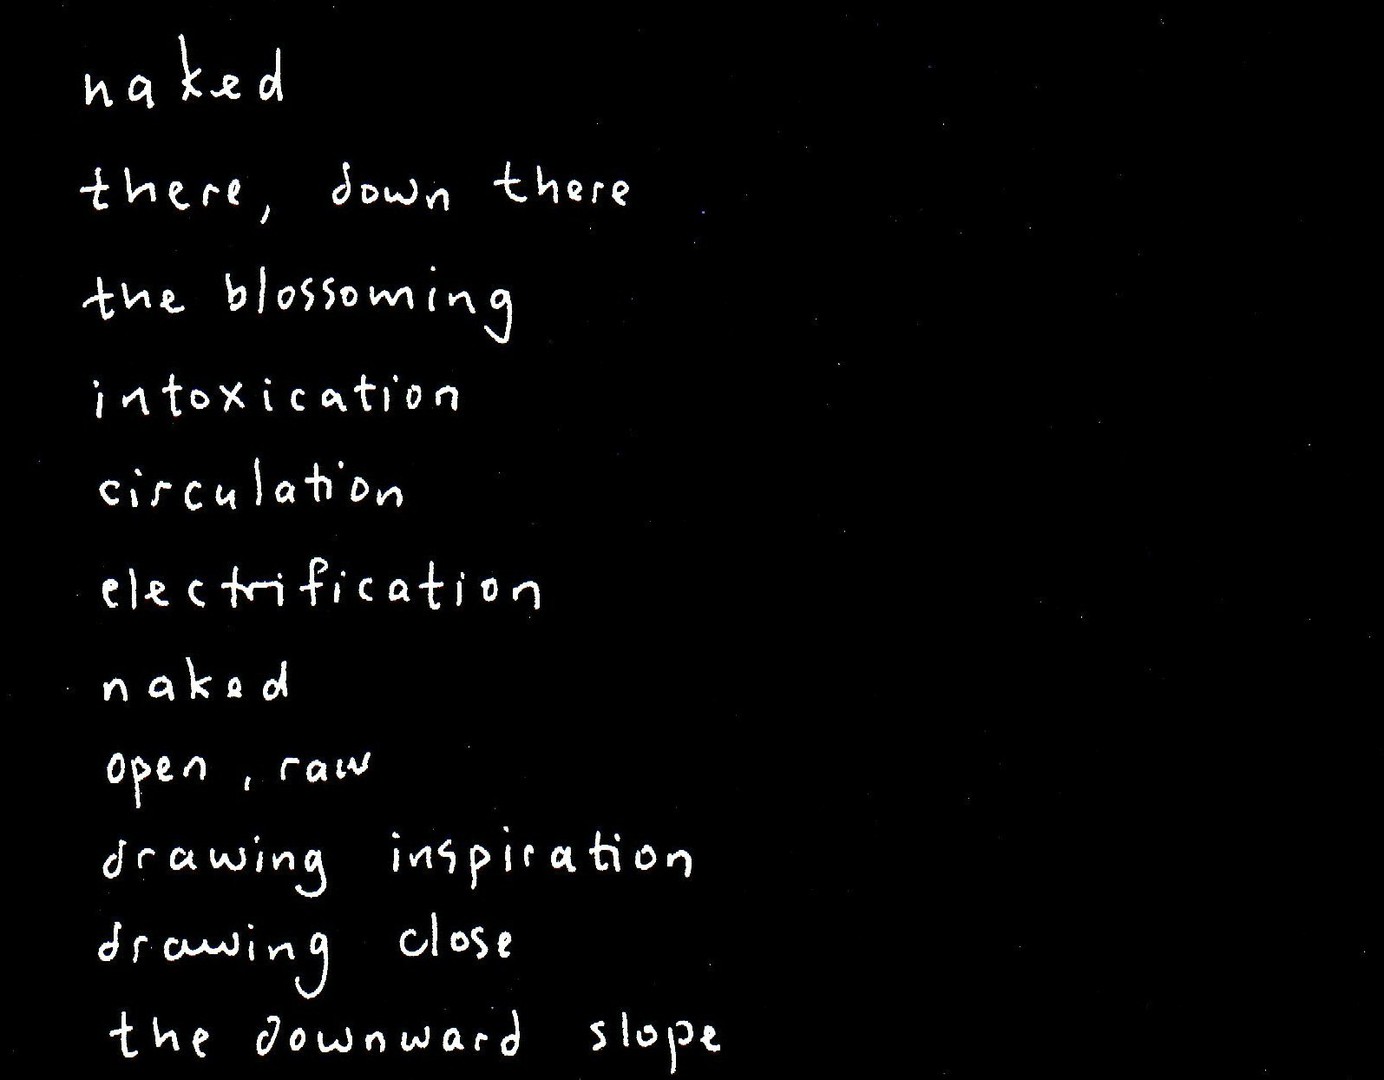 naked
there, down there
the blossoming
intoxication
circulation
electrification
naked
open, raw
drawing inspiration
drawing close
the downward slope